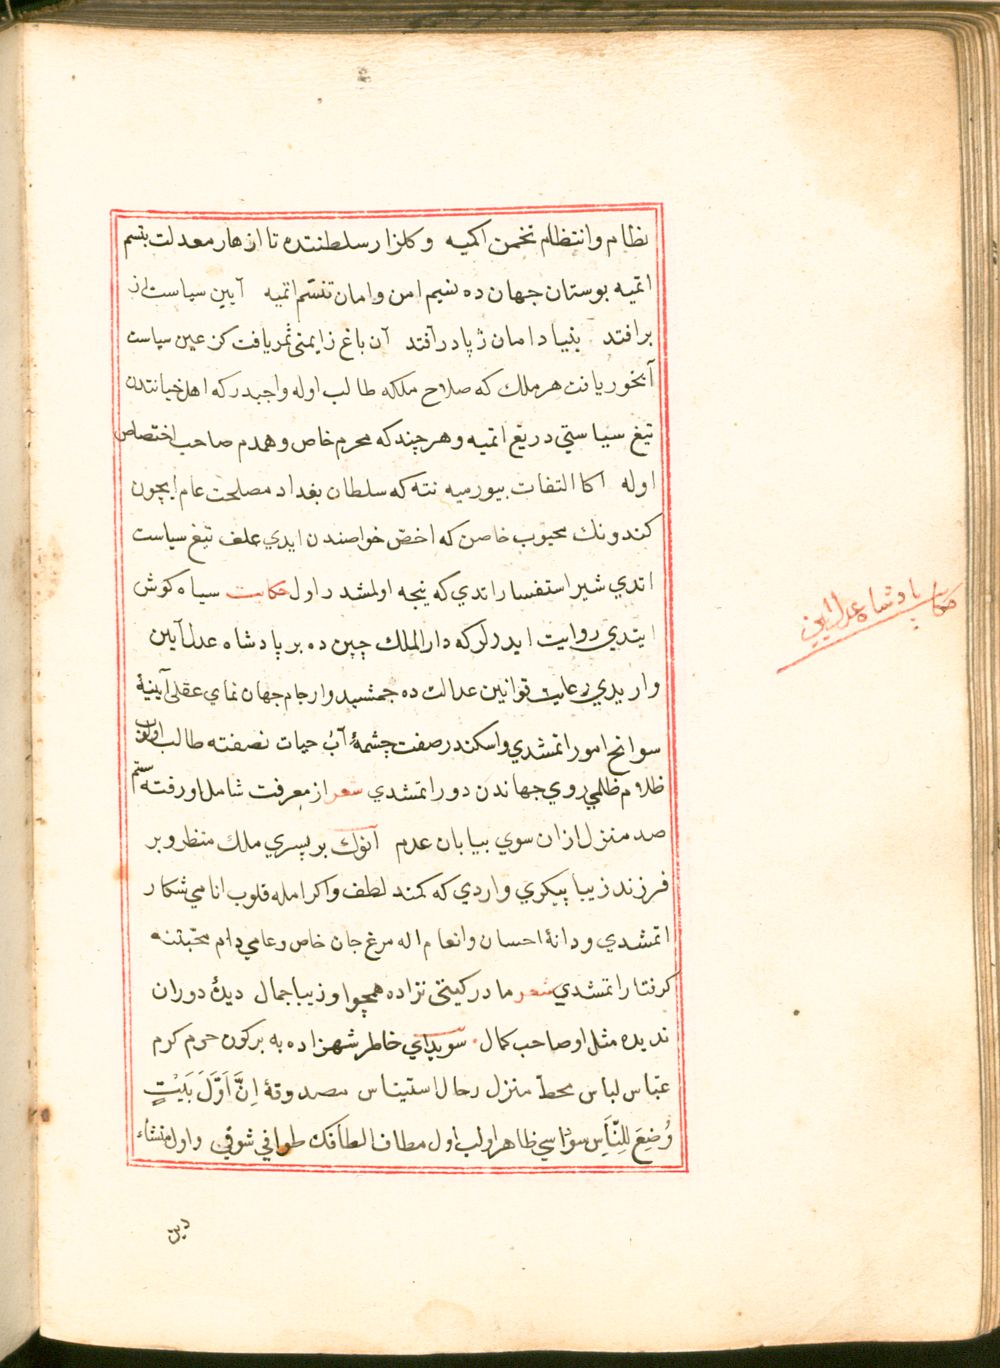 نظام وانتظام تخمن اكميه وكلزار سلطنتده تا ازهار معدلت بتسم
اتميه بوستان جهان ده نسيم امن وامان تنسّم اتميه آيين سياست از
برافتد بنياد امان ز پا درآفتد آن باغ ز ايمنى ثمر يافت كز عين سياست
آبخور يافت هر ملك كه صلاح ملكه طالب اوله واجبدر كه اهل خيانتدن
تيغ سياستي دريغ اتميه وهر چند كه محرم خاص وهمدم صاحب اختصاص
اوله اكا التفات بيورميه نته كه سلطان بغداد مصلحت عام ايچون
كندونك محبوب خاصن كه اخصّ خواصندن ايدي علف تيغ سياست
اتدي شير استفسار اتدي كه نيجه اولمشدر اول حكايت سياه كوش
ايتدي روايت ايدرلر كه دار الملك چين ده بر پادشاه عدل آيين
واريدي رعايت قوانين عدالت ده جمشيدوار جام جهان نماي عقلى آيينهٔ
سوانح امور اتمشدي واسكندر صفت چشمهٔ آب حيات نصفته طالب اولوب
ظلام ظلمي روي جهاندن دور اتمشدي شعر از معرفت شامل او رفته ستم
صد منزل ازان سوي بيابان عدم آنوك بر پسري ملك منظر وبر
فرزند زيبا پيكري واردي كه كمند لطف واكرامله قلوب انامي شكار
اتمشدي ودانهٔ احسان وانعام اله مرغ جان خاص وعامي دام محبتنه
كرفتار اتمشدي شعر مادر كيتى نزاده همچو او زيبا جمال ديدهٔ دوران
نديده مثل او صاحب كمال سويداي خاطر شهزاده يه بر كون حرم كرم
عبّاس لباس محطّ منزل رحال استيناس مصدوقهٔ اِنَّ اَوَّلَ بَيْتٍ
وُضِعَ لِلنَّاسِ سوداسي ظاهر اولب اول مطاف الطافك طوافي شوقي واول منشاء
دين
حكايت پادشاه عدل آيين